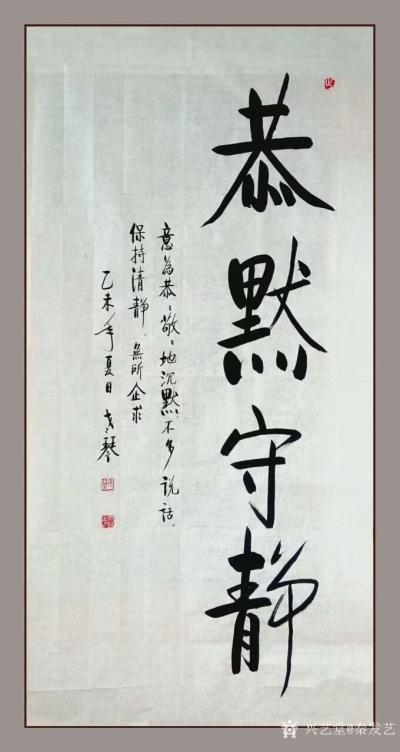 恭默守静
意为恭恭敬敬地沉默不多说话、
保持清静、無所企求
乙未年夏日
兴艺堂@秦发艺